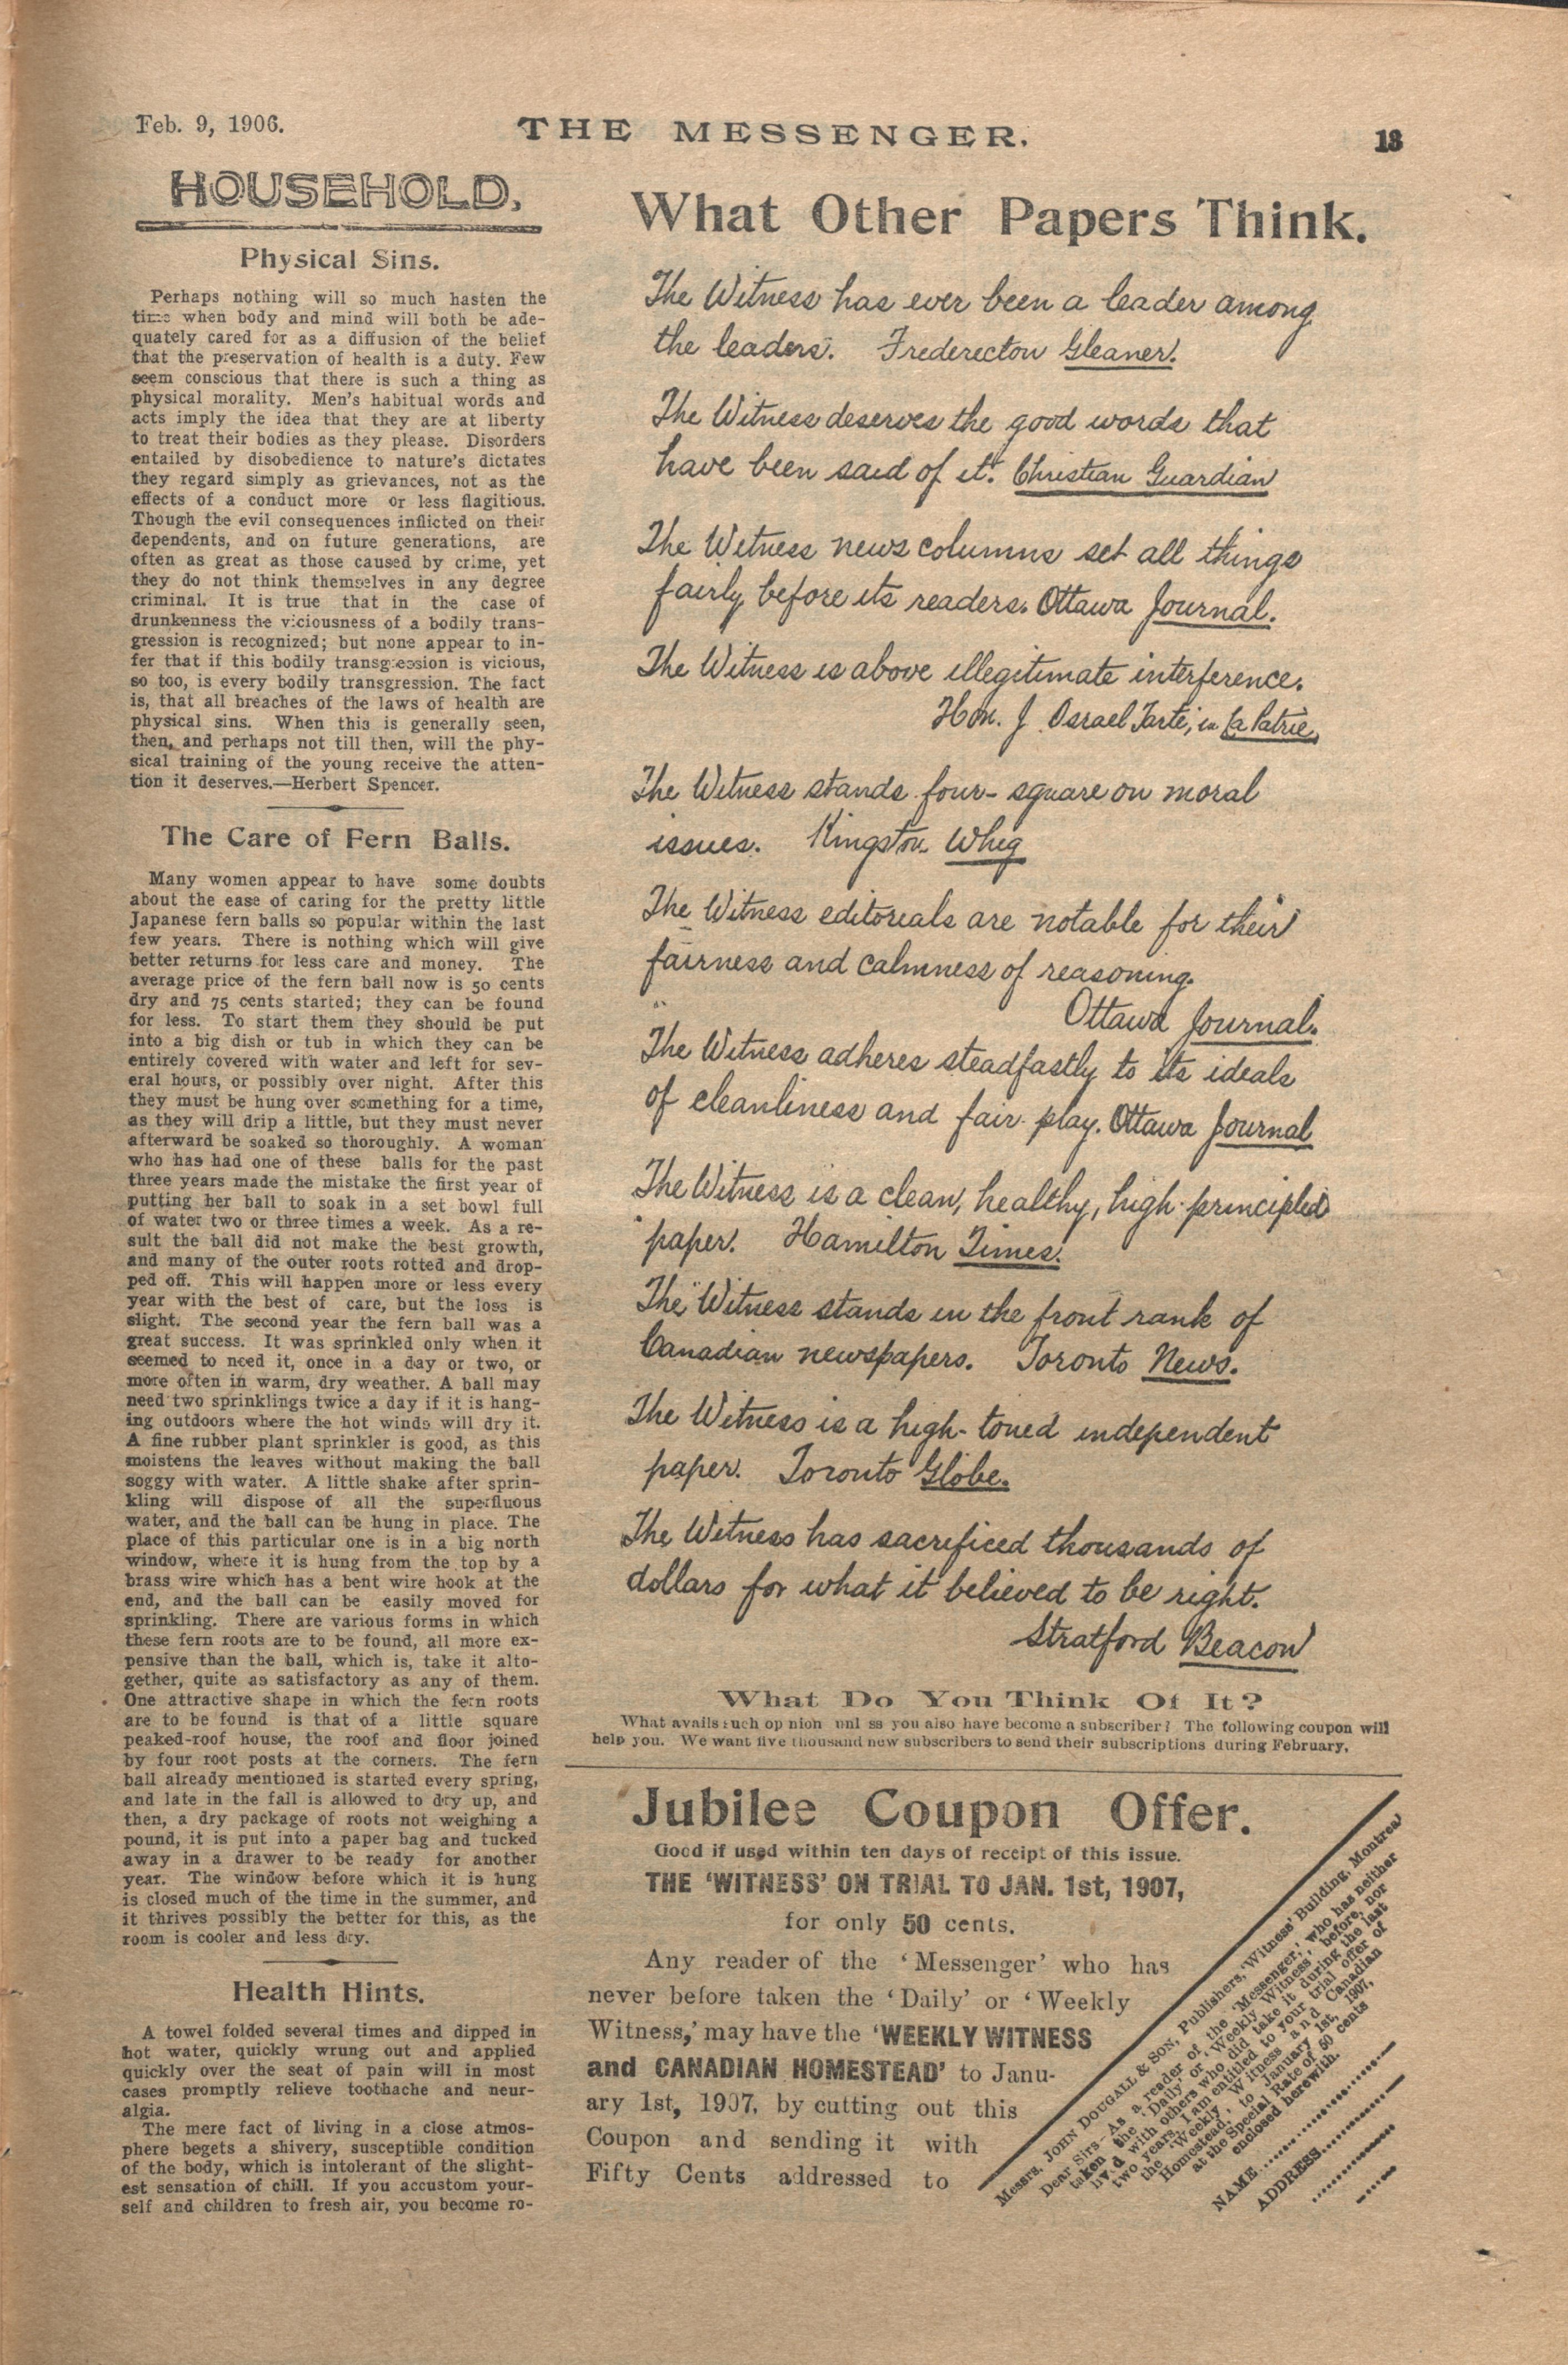 Feb. 9, 1906.
THE MESSENGER.
13
HOUSEHOLD.
Physical Sins.
Perhaps nothing will so much hasten the
time when body and mind will both be ade-
quately cared for as a diffusion of the belief
that the preservation of health is a duty. Few
seem conscious that there is such a thing as
physical morality. Men's habitual words and
acts imply the idea that they are at liberty
to treat their bodies as they please. Disorders
entailed by disobedience to nature's dictates
they regard simply as grievances, not as the
effects of a conduct more or less flagitious.
Though the evil consequences inflicted on their
dependents, and on future generations, are
often as great as those caused by crime, yet
they do not think themselves in any degree
criminal. It is true that in the case of
drunkenness the viciousness of a bodily trans-
gression is recognized; but none appear to in-
fer that if this bodily transgression is vicious,
so too, is every bodily transgression. The fact
is, that all breaches of the laws of health are
physical sins. When this is generally seen,
then, and perhaps not till then, will the phy-
sical training of the young receive the atten-
tion it deserves.—Herbert Spencer.
The Care of Fern Balls.
Many women appear to have some doubts
about the ease of caring for the pretty little
Japanese fern balls so popular within the last
few years. There is nothing which will give
better returns for less care and money. The
average price of the fern ball now is 50 cents
dry and 75 cents started; they can be found
for less. To start them they should be put
into a big dish or tub in which they can be
entirely covered with water and left for sev-
eral hours, or possibly over night. After this
they must be hung over something for a time,
as they will drip a little, but they must never
afterward be soaked so thoroughly. A woman
who has had one of these balls for the past
three years made the mistake the first year of
putting her ball to soak in a set bowl full
of water two or three times a week. As a re-
sult the ball did not make the best growth,
and many of the outer roots rotted and drop-
ped off. This will happen more or less every
year with the best of care, but the loss is
slight. The second year the fern ball was a
great success. It was sprinkled only when it
seemed to need it, once in a day or two, or
more often in warm, dry weather. A ball may
need two sprinklings twice a day if it is hang-
ing outdoors where the hot winds will dry it.
A fine rubber plant sprinkler is good, as this
moistens the leaves without making the ball
soggy with water. A little shake after sprin-
kling will dispose of all the superfluous
water, and the ball can be hung in place. The
place of this particular one is in a big north
window, where it is hung from the top by a
brass wire which has a bent wire hook at the
end, and the ball can be easily moved for
sprinkling. There are various forms in which
these fern roots are to be found, all more ex-
pensive than the ball, which is, take it alto-
gether, quite as satisfactory as any of them.
One attractive shape in which the fern roots
are to be found is that of a little square
peaked-roof house, the roof and floor joined
by four root posts at the corners. The fern
ball already mentioned is started every spring,
and late in the fall is allowed to dry up, and
then, a dry package of roots not weighing a
pound, it is put into a paper bag and tucked
away in a drawer to be ready for another
year. The window before which it is hung
is closed much of the time in the summer, and
it thrives possibly the better for this, as the
room is cooler and less dry.
Health Hints.
A towel folded several times and dipped in
hot water, quickly wrung out and applied
quickly over the seat of pain will in most
cases promptly relieve toothache and neur-
algia.
The mere fact of living in a close atmos-
phere begets a shivery, susceptible condition
of the body, which is intolerant of the slight-
est sensation of chill. If you accustom your-
self and children to fresh air, you become ro-
What Other Papers Think.
The Witness has ever been a leader among
the leaders. Frederecton Gleaner.
The Witness deserves the good words that
have been said of it. Christian Guardian
The Witness news columns set all things
fairly before its readers. Ottawa Journal.
The Witness is above illegitimate interference.
Hon. J. Osrael Tarte, in La Patrie,
The Witness stands four-square on moral
issues. Kingston Whig
The Witness editorials are notable for their
fairness and calmness of reasoning.
Ottawa Journal.
The Witness adheres steadfastly to its ideals
of cleanliness and fair play. Ottawa Journal
The Witness is a clean, healthy, high-principled
paper. Hamilton Times.
The Witness stands in the front rank of
Canadian newspapers. Toronto News.
The Witness is a high-toned independent
paper. Toronto Globe.
The Witness has sacrificed thousands of
dollars for what it believed to be right.
Stratford Beacon
What Do You Think Of It?
What avails such opinion unless you also have become a subscriber? The following coupon will
help you. We want five thousand new subscribers to send their subscriptions during February.
Jubilee Coupon Offer.
Good if used within ten days of receipt of this issue.
THE 'WITNESS' ON TRIAL TO JAN. 1st, 1907,
for only 50 cents.
Any reader of the 'Messenger' who has
never before taken the 'Daily' or 'Weekly
Witness,' may have the 'WEEKLY WITNESS
and CANADIAN HOMESTEAD' to Janu-
ary 1st, 1907, by cutting out this
Coupon and sending it with
Fifty Cents addressed to
Messrs. JOHN DOUGALL & SON, Publishers, 'Witness' Building, Montreal
Dear Sirs—As a reader of the 'Messenger,' who has neither
taken the 'Daily' or 'Weekly Witness' before, nor
lived with others who did take it during the last
two years, I am entitled to your trial offer of
the 'Weekly Witness and Canadian
Homestead,' to January 1st, 1907,
at the Special Rate of 50 cents
enclosed herewith.
NAME
ADDRESS